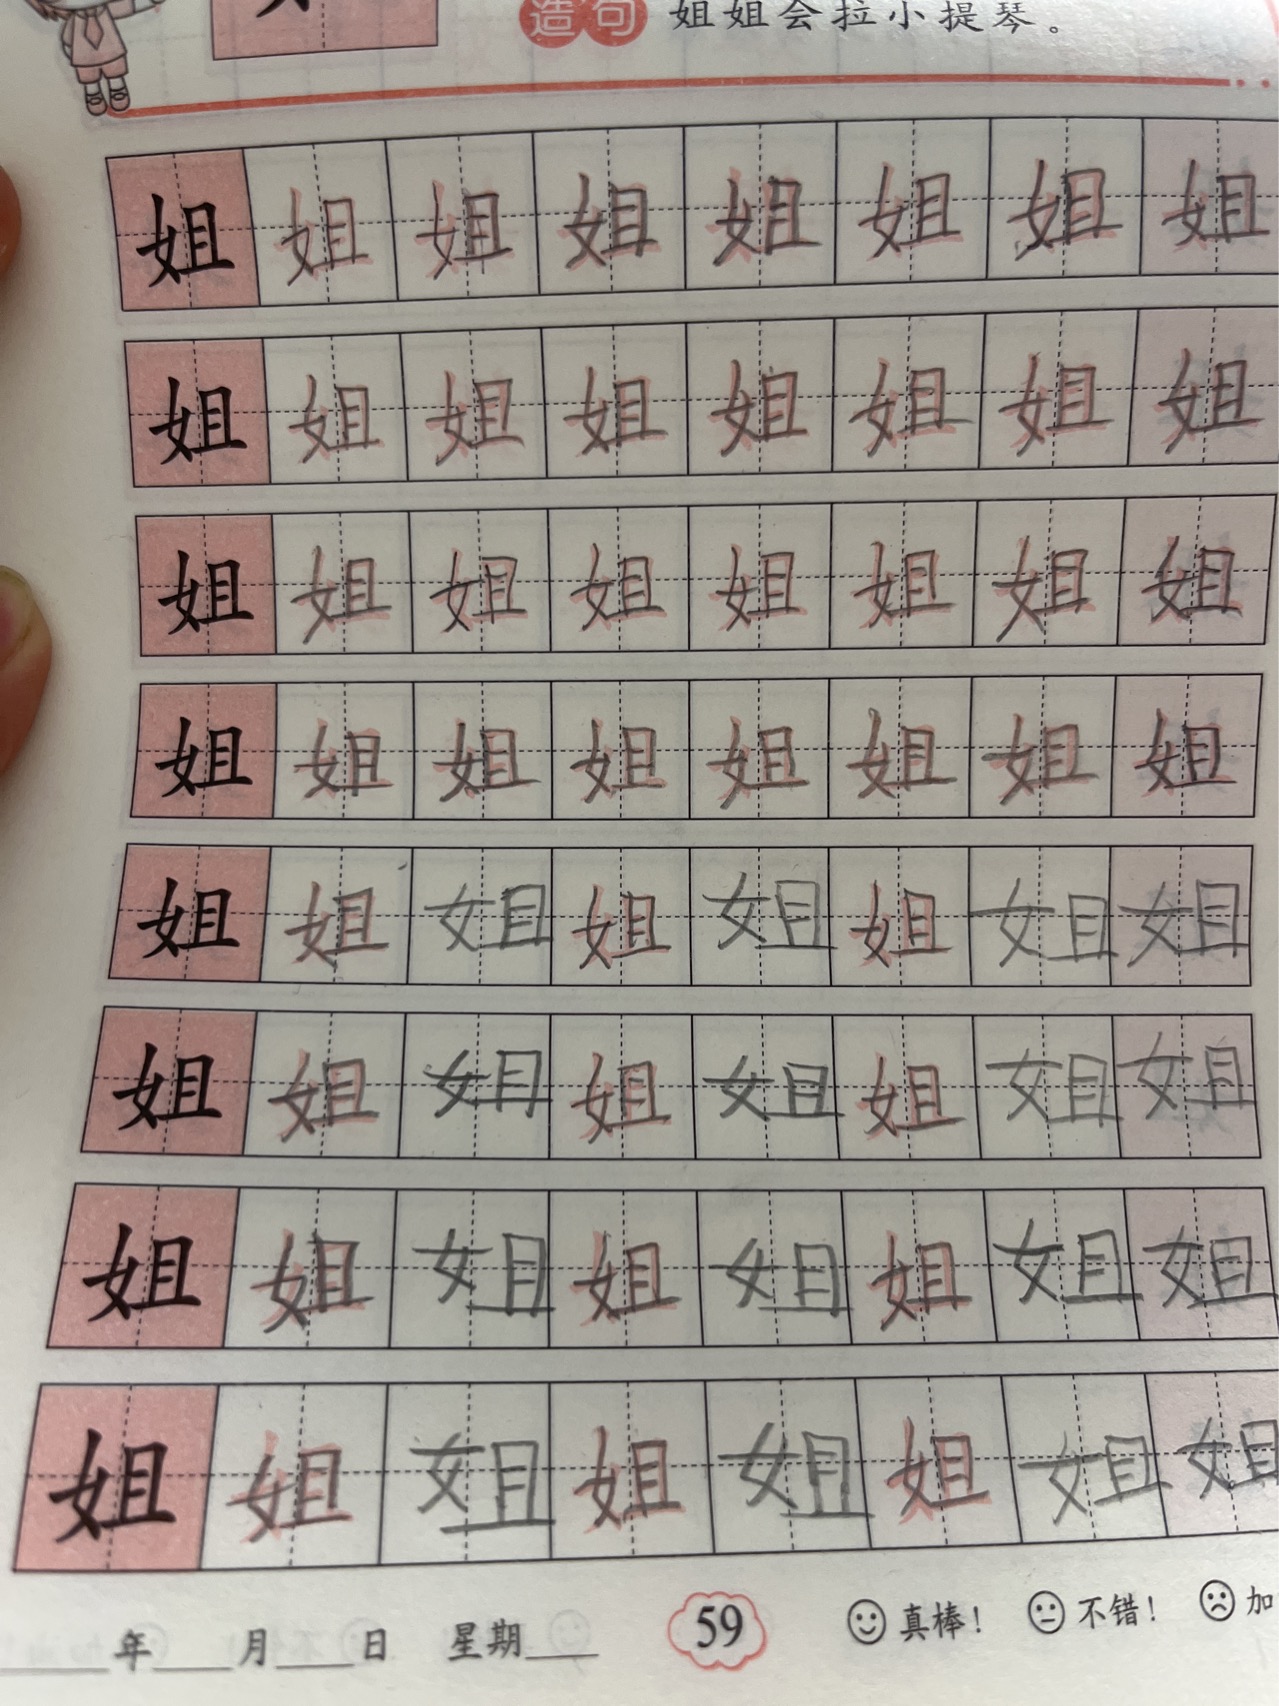 造句 姐姐会拉小提琴。
姐 姐 姐 姐 姐 姐 姐 姐
姐 姐 姐 姐 姐 姐 姐 姐
姐 姐 姐 姐 姐 姐 姐 姐
姐 姐 姐 姐 姐 姐 姐 姐
姐 姐 姐 姐 姐 姐 姐 姐
姐 姐 姐 姐 姐 姐 姐 姐
姐 姐 姐 姐 姐 姐 姐 姐
姐 姐 姐 姐 姐 姐 姐 姐
____年____月____日 星期____ 59 真棒! 不错! 加